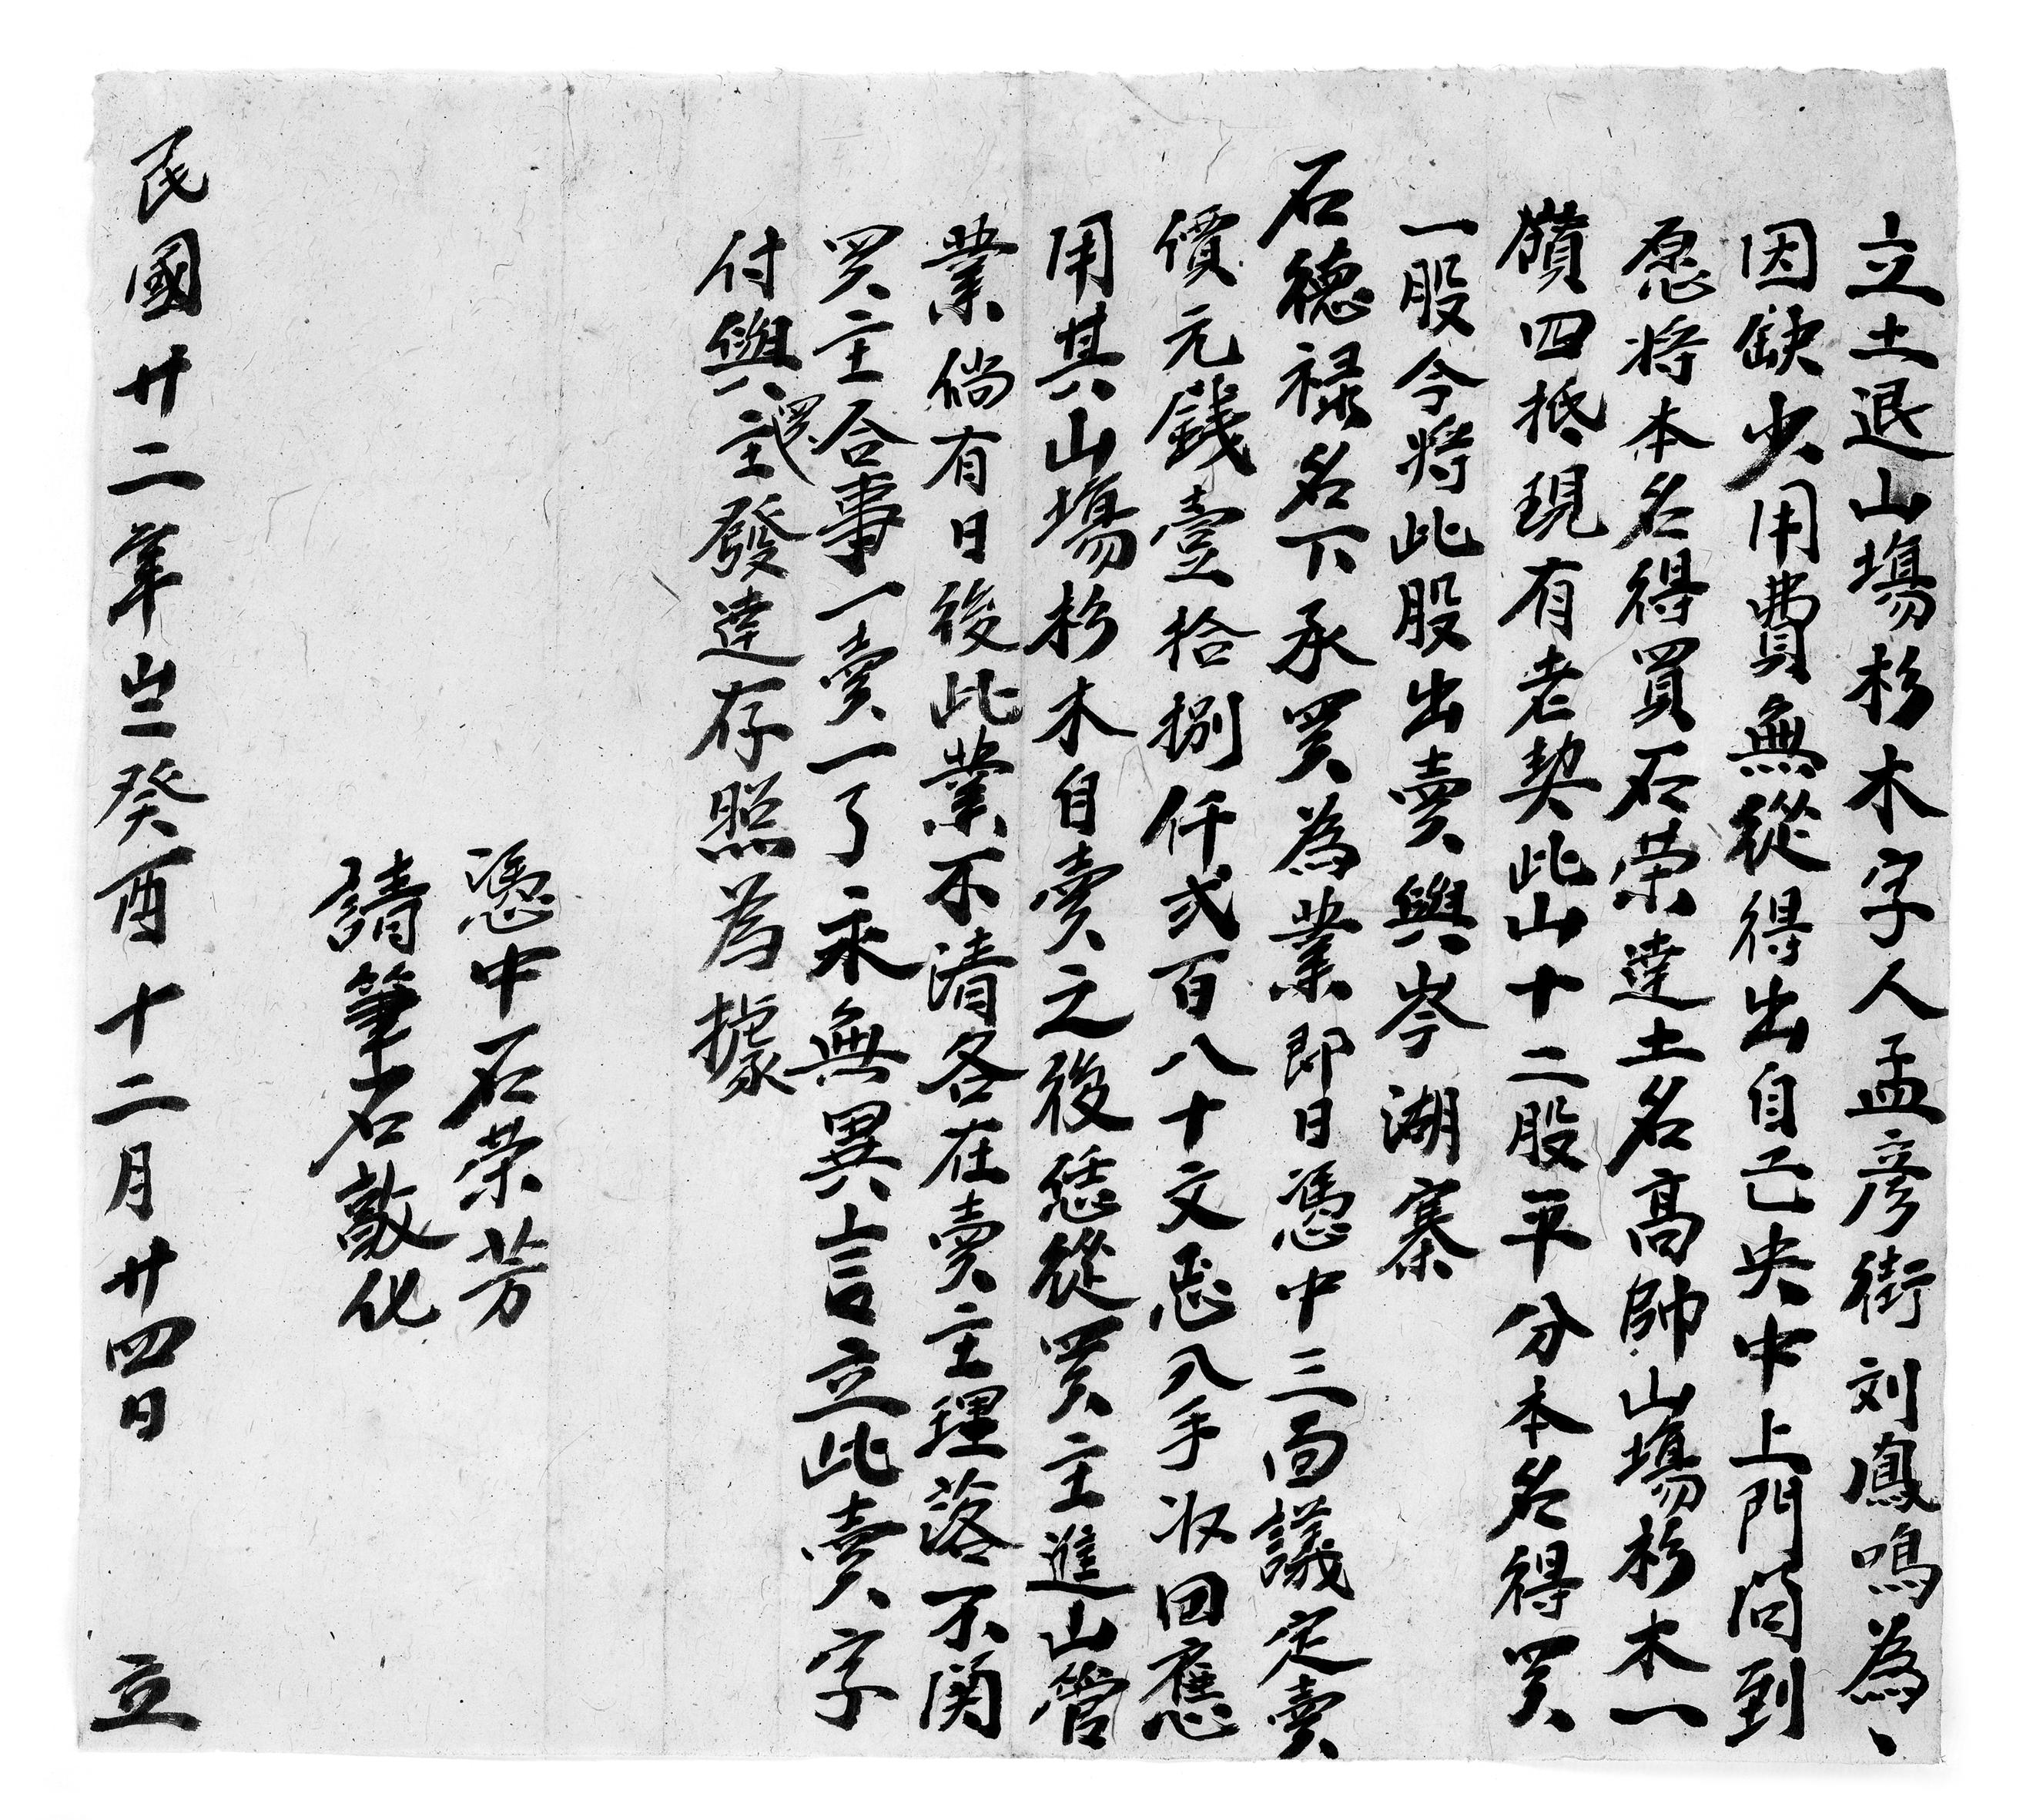 立土退山塲杉木字人孟彦街刘鳳鳴為〻
因缺少用費無從得出自己央中上門问到
愿将本名得買石荣達土名高帥山塲杉木一
嶺四抵現有老契此山十二股平分本名得买
一股今将此股出賣與岑湖寨
石德禄名下承买為業即日憑中三面議定賣
價元錢壹拾捌仟弍百八十文岙入手收回應
用其山塲杉木自賣之後恁從买主進山管
業倘有日後此業不清各在賣主理落不関
买主合事一賣一了永無異言立此賣字
付與买主發達存照為據
憑中石荣芳
請筆石敦化
民國廿二年歲癸酉十二月廿四日 立